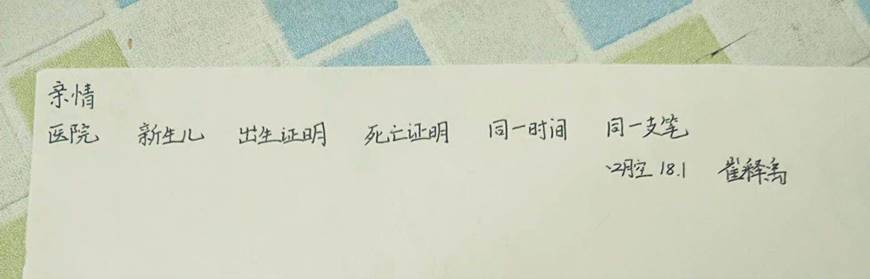 亲情
医院 新生儿 出生证明 死亡证明 同一时间 同一支笔
口腔 18.1 崔释禹